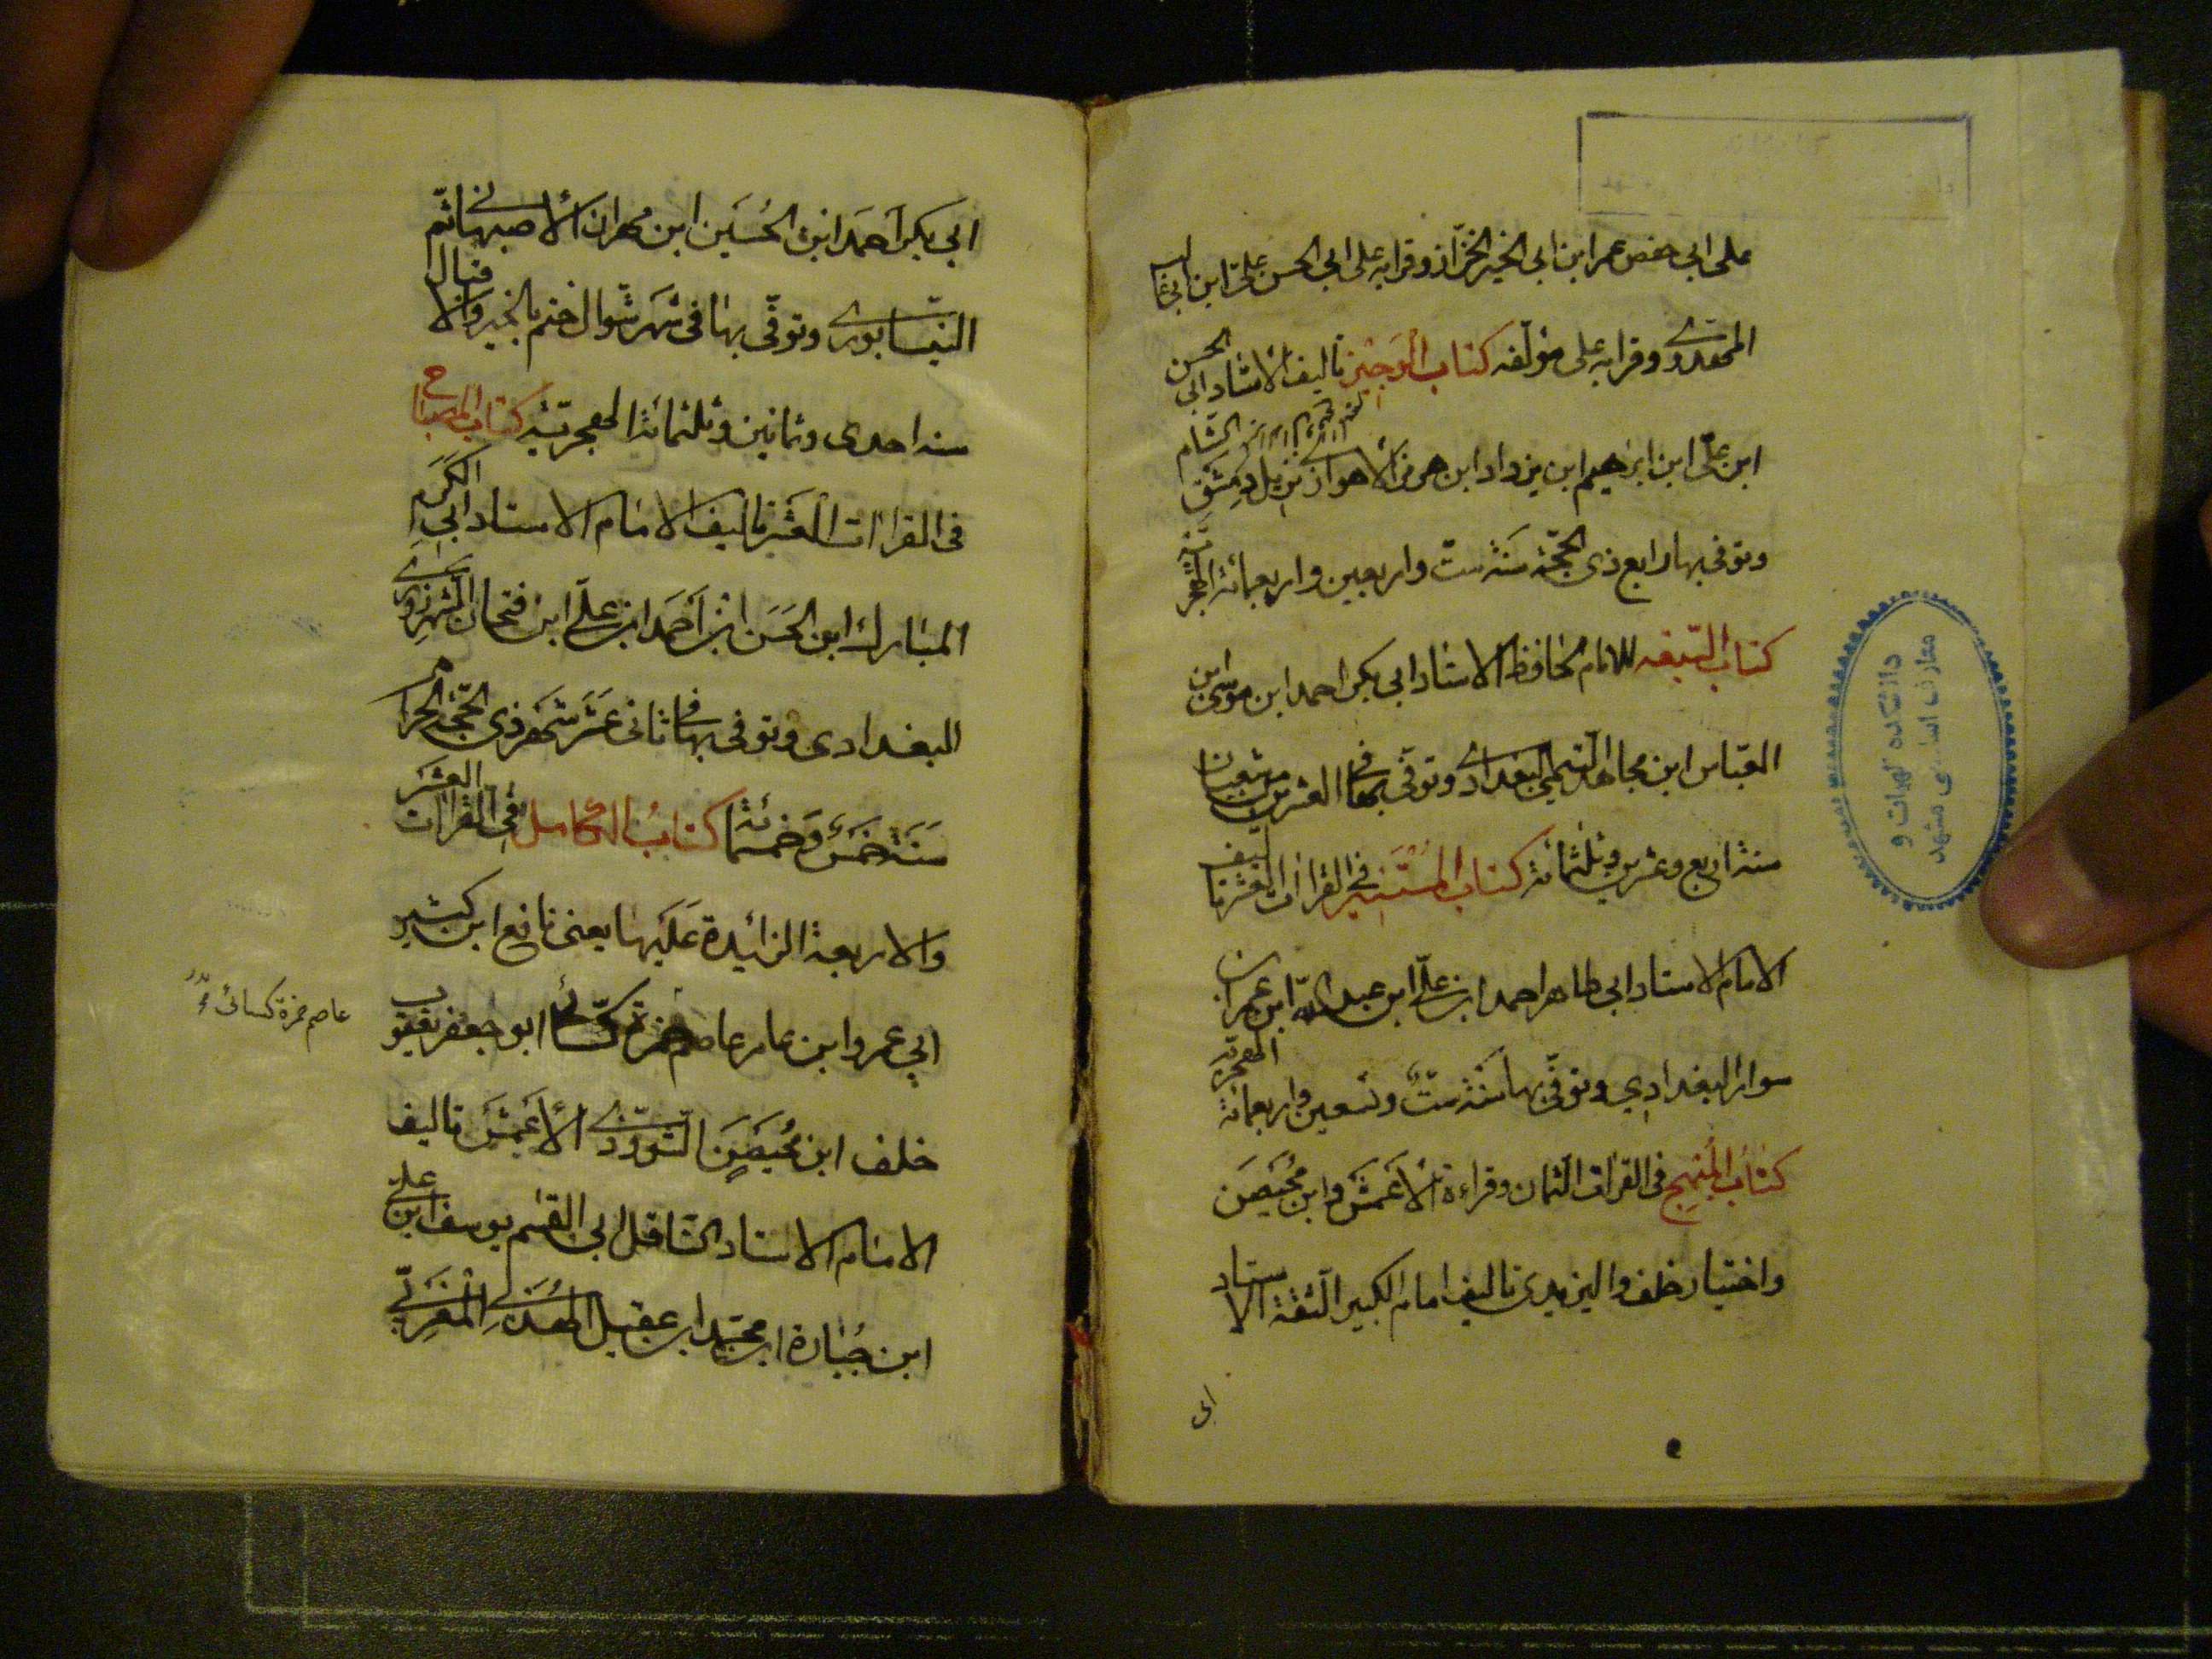 علی ابی حفص عمر ابن ابی الخیر الخزاز وقرا به علی ابی الحسن علی ابن ابی
وقرا به علی مؤلفه کتاب الوجیز تالیف الاستاد ابی الحسن
ابن علی ابن ابرهیم ابن یزداد ابن هرمز الاهوازی نزیل دمشق الشام
وتوفی بها رابع ذی الحجّة سَنَة ستّ واربعین واربعمائة الهجریّة
کتاب السّبعه للامام الحافظ الاستاد ابی بکر احمد ابن موسی ابن
العبّاس ابن مجاهد التمیمی البغدادی وتوفّی بها فی العشرین من شعبان
سنة اربع وعشرین وثلثمائة کتاب المُستَنیر فی القراآت العشر تالیف
الامام الاستاد ابی طاهر احمد ابن علیّ ابن عبد اللّه ابن عمر ابن
سوار البغدادی وتوفّی بها سَنَة ستّ وتسعین واربعمائة الهجریّة
کتاب المُبهج فی القراآت الثمان وقراءة الاَعمَش وابن مُحَیصَن
واختیار خلف والیزیدی تالیف امام الکبیر الثقة الاستاد
ابی
دانشکده الهیات و
معارف اسلامی مشهد
ابی بکر اَحمَد ابن الحُسَین ابن مهران الأصبهانی ثم
النیّسابوری وتوفّی بها فی شهر شوّال ختم بالخیر والاقبال
سنه احدی وثمانین وثلثمائة الهجریّة کتاب المصباح
فی القراآت العَشر تالیف الامام الاستاد ابی الکرَم
المبارک ابن الحَسَن ابن اَحمَد ابن علیّ ابن فتحان الشهرزوری
البغدادی وتوفی بها فی ثانی عَشَر شهر ذی الحجّة الحرام
سَنَة خمسَ وخمسمائة کتابُ الکامل فی القراآت العشَر
والاربعة الزائیدة عَلَیها یعنی نافع ابن کثیر
ابی عمرو ابن عامر عاصم حمزة کسّائی ابو جعفر یعقوب
عاصم حمزة کسائی
خلف ابن مُحیصَن الاَعمَشَ تالیف
الامام الاستاد الناقل ابی القسم یوسف ابن علی
ابن جُبارة ابن محمّد ابن عقیل الهُذَلی المَغربّی